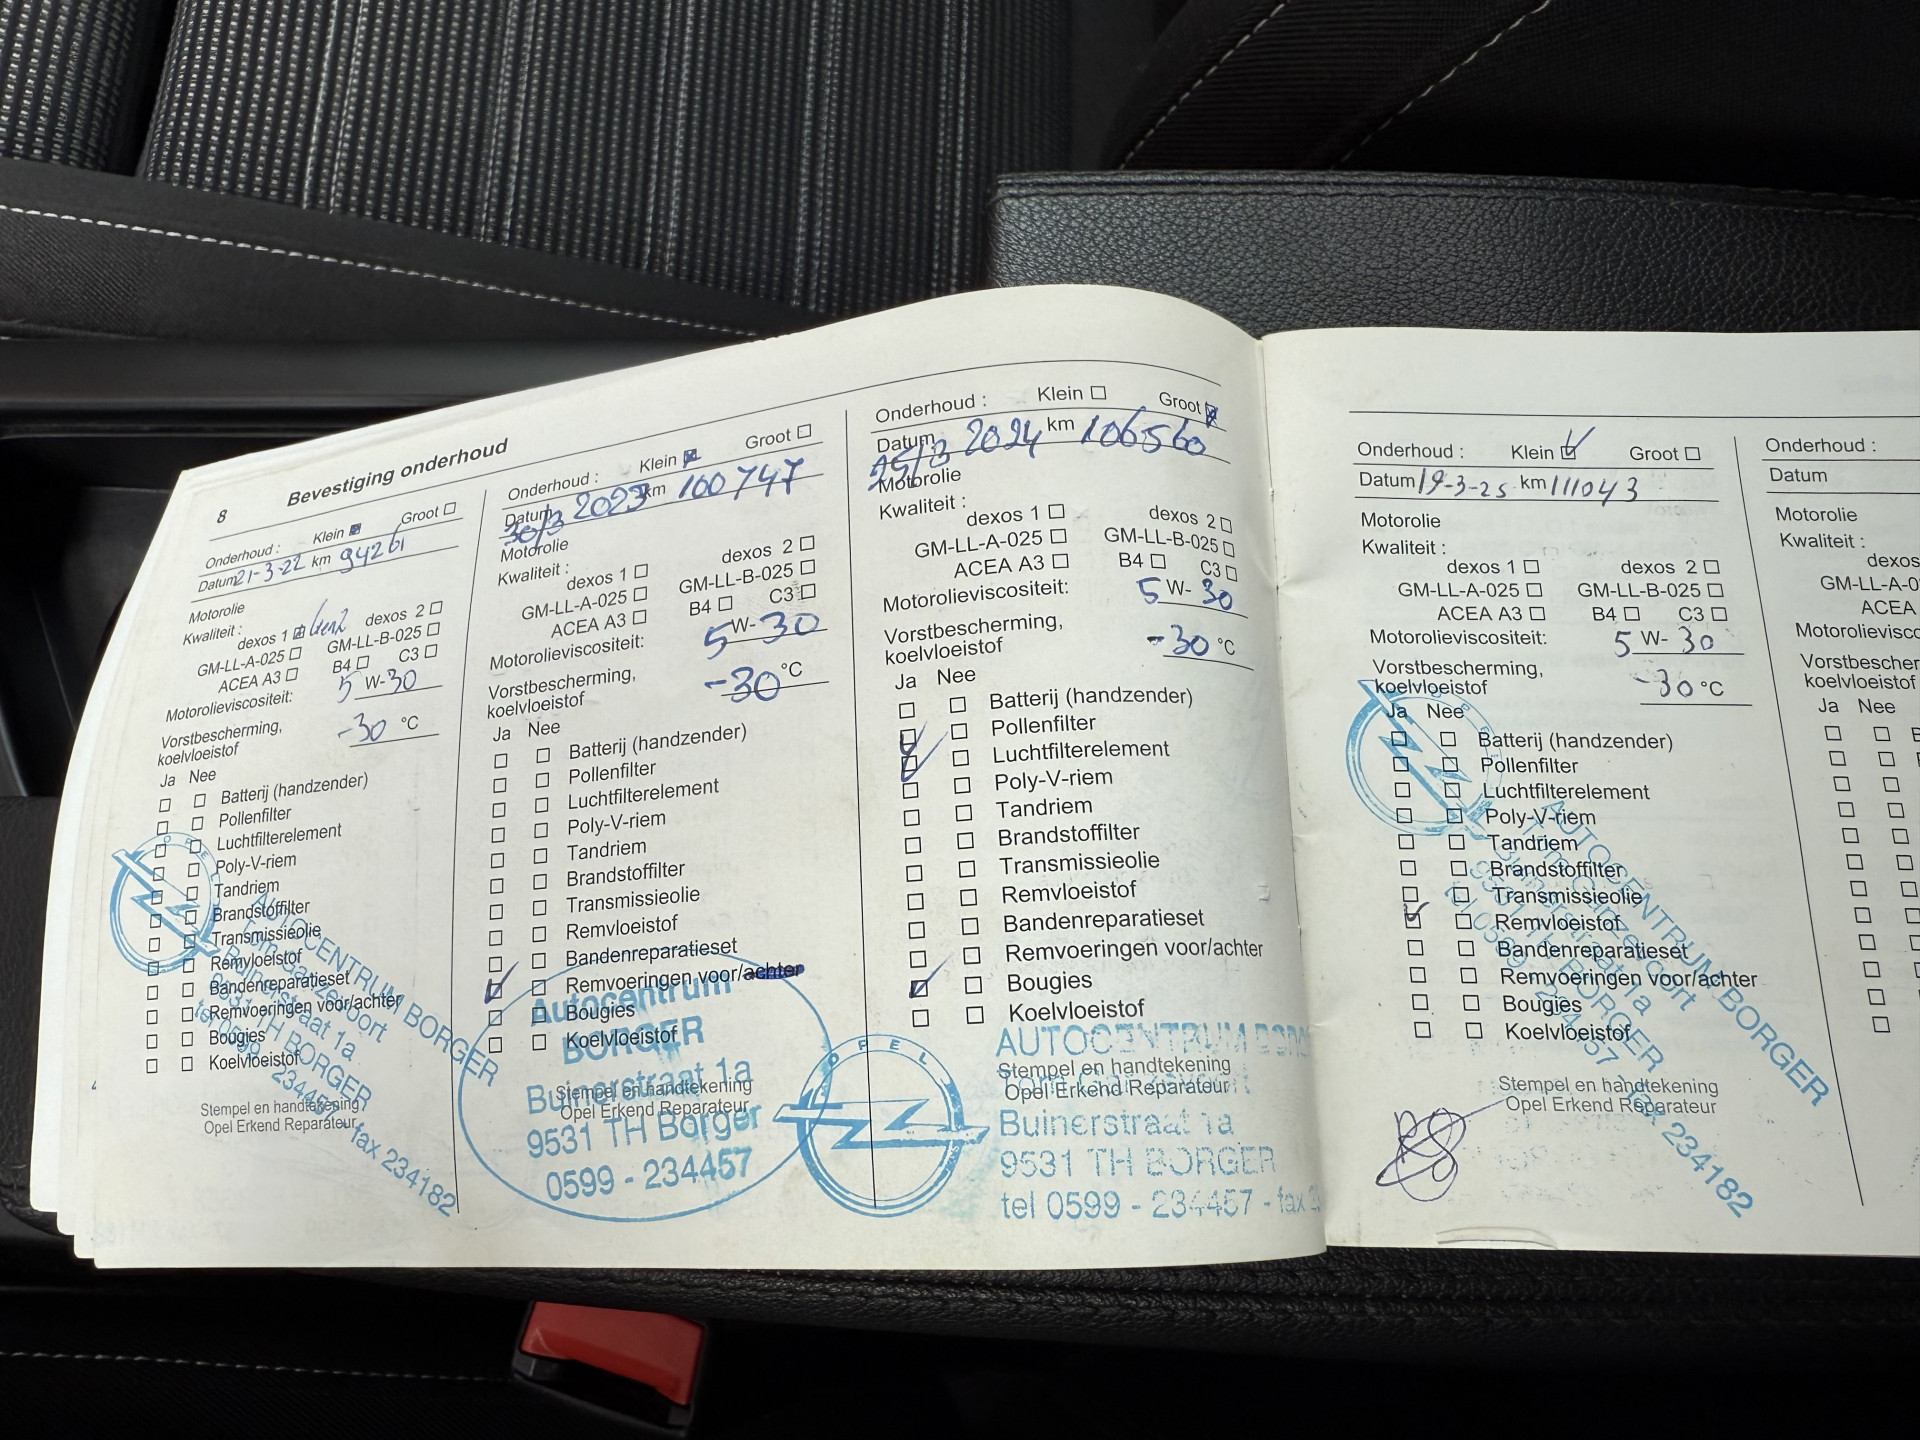 8 Bevestiging onderhoud
Onderhoud : Klein ☒ Groot ☐
Datum 21-3-22 km 94261
Motorolie
Kwaliteit :
dexos 1 ☒ Gen2 dexos 2 ☐
GM-LL-A-025 ☐ GM-LL-B-025 ☐
ACEA A3 ☐ B4 ☐ C3 ☐
Motorolieviscositeit: 5 W-30
Vorstbescherming,
koelvloeistof -30 °C
Ja Nee
☐ ☐ Batterij (handzender)
☐ ☐ Pollenfilter
☐ ☐ Luchtfilterelement
☐ ☐ Poly-V-riem
☐ ☐ Tandriem
☐ ☐ Brandstoffilter
☐ ☐ Transmissieolie
☐ ☐ Remvloeistof
☐ ☐ Bandenreparatieset
☐ ☐ Remvoeringen voor/achter
☐ ☐ Bougies
☐ ☐ Koelvloeistof
Stempel en handtekening
Opel Erkend Reparateur
OPEL
AUTOCENTRUM BORGER
Buinerstraat 1a
9531 TH BORGER
tel 0599 - 234457 - fax 234182
Onderhoud : Klein ☒ Groot ☐
Datum 30/3 2023 km 100747
Motorolie
Kwaliteit :
dexos 1 ☐ dexos 2 ☐
GM-LL-A-025 ☐ GM-LL-B-025 ☐
ACEA A3 ☐ B4 ☐ C3 ☐
Motorolieviscositeit: 5 W-30
Vorstbescherming,
koelvloeistof -30 °C
Ja Nee
☐ ☐ Batterij (handzender)
☐ ☐ Pollenfilter
☐ ☐ Luchtfilterelement
☐ ☐ Poly-V-riem
☐ ☐ Tandriem
☐ ☐ Brandstoffilter
☐ ☐ Transmissieolie
☐ ☐ Remvloeistof
☐ ☐ Bandenreparatieset
☑ ☐ Remvoeringen voor/achter
☐ ☐ Bougies
☐ ☐ Koelvloeistof
Stempel en handtekening
Opel Erkend Reparateur
Autocentrum
BORGER
Buinerstraat 1a
9531 TH Borger
0599 - 234457
Onderhoud : Klein ☐ Groot ☒
Datum 25/3 2024 km 106560
Motorolie
Kwaliteit :
dexos 1 ☐ dexos 2 ☐
GM-LL-A-025 ☐ GM-LL-B-025 ☐
ACEA A3 ☐ B4 ☐ C3 ☐
Motorolieviscositeit: 5 W-30
Vorstbescherming,
koelvloeistof -30 °C
Ja Nee
☐ ☐ Batterij (handzender)
☑ ☐ Pollenfilter
☑ ☐ Luchtfilterelement
☐ ☐ Poly-V-riem
☐ ☐ Tandriem
☐ ☐ Brandstoffilter
☐ ☐ Transmissieolie
☐ ☐ Remvloeistof
☐ ☐ Bandenreparatieset
☐ ☐ Remvoeringen voor/achter
☑ ☐ Bougies
☐ ☐ Koelvloeistof
Stempel en handtekening
Opel Erkend Reparateur
OPEL
AUTOCENTRUM
Buinerstraat 1a
9531 TH BORGER
tel 0599 - 234457 - fax
Onderhoud : Klein ☑ Groot ☐
Datum 19-3-25 km 111043
Motorolie
Kwaliteit :
dexos 1 ☐ dexos 2 ☐
GM-LL-A-025 ☐ GM-LL-B-025 ☐
ACEA A3 ☐ B4 ☐ C3 ☐
Motorolieviscositeit: 5 W-30
Vorstbescherming,
koelvloeistof -30 °C
Ja Nee
☐ ☐ Batterij (handzender)
☐ ☐ Pollenfilter
☐ ☐ Luchtfilterelement
☐ ☐ Poly-V-riem
☐ ☐ Tandriem
☐ ☐ Brandstoffilter
☐ ☐ Transmissieolie
☑ ☐ Remvloeistof
☐ ☐ Bandenreparatieset
☐ ☐ Remvoeringen voor/achter
☐ ☐ Bougies
☐ ☐ Koelvloeistof
Stempel en handtekening
Opel Erkend Reparateur
AUTOCENTRUM BORGER
Buinerstraat 1a
9531 TH BORGER
tel 0599 - 234457 - fax 234182
Onderhoud :
Datum
Motorolie
Kwaliteit :
dexos
GM-LL-A-0
ACEA
Motorolievisco
Vorstbescher
koelvloeistof
Ja Nee